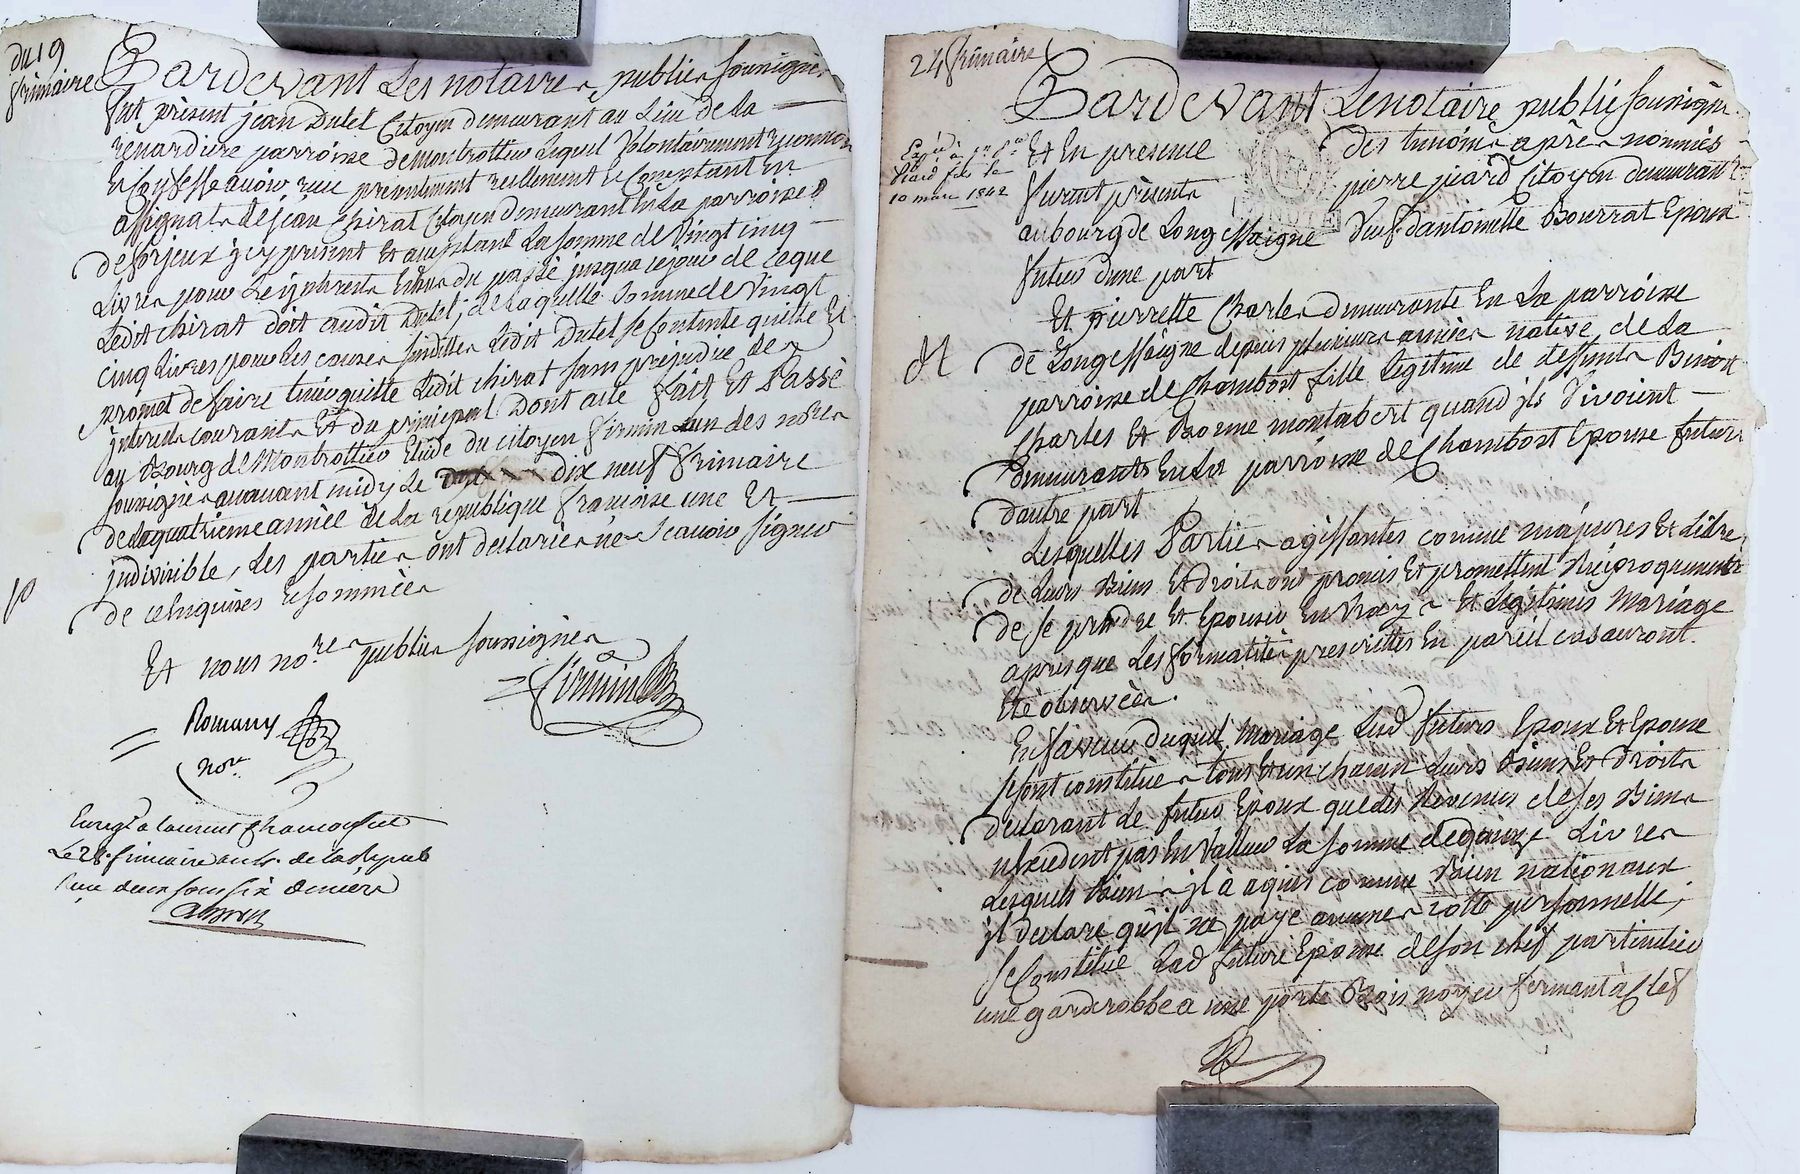 du 19
frimaire
Pardevant Les notaires publics soussignés
fut présent jean Dutel Citoyen demeurant au Lieu de la
rénardiere parroisse de montrottier Lequel Volontairement reconnoit
et Confesse avoir reçu présentement réellement et Comptant En
assignats de jean Chirat Citoyen demeurant En La parroisse
de forjeux y cy présent Et acceptant La somme de Vingt cinq
Livres pour Les jnthrests Echus du passé jusqua cejour de ce que
Ledit chirat doit audit Dutel, de laquelle somme de Vingt
cinq Livres pour Les causes susdittes Ledit Dutel se Contente quitte Et
promet defaire tenir quitte Ledit chirat sans préjudice des
jnterets courants Et du principal Dont acte fait Et Passé
au Bourg de Montrottier Etude du citoyen firmin un des nores
soussignés avavant midy Le dix neuf frimaire
de laquatrieme année de La république françoise une Et
jndivisible, Les parties ont declarées ne Scavoir signer
de ce Enquises Et sommées
Et nous nores publics soussignés
firmin
Romany
nore
Enregé a Laurent Chamousset
Le 28 frimaire an 4e de la Repub
Reçu deux sous six deniers
24 frimaire
Pardevant Lenotaire public soussigné
Et En presence des temoins après nommés
Expédié
Piard fils le
10 mars 1842
furent présents pierre piard Citoyen demeurant
aubourg de Longessaigne Veuf dantoinette Bourrat Epoux
futur dune part
Et pierrette Charles demeurante En La parroisse
de Longessaigne depuis plusieurs années native de La
parroisse de Chambost fille Legitime de deffunts Benoit
Charles Et Bonne montabert quand jls Vivoient
demeurants En La parroisse de Chambost Epouse future
dautre part
Lesquelles Parties agissantes comme majeures Et Libres
de Leurs Biens Et droits ont promis Et promettent Réciproquement
de se prendre Et Epouser En Vray Et Légitimes Mariage
apres que Les formalités prescrittes En pareil cas auront
Eté observées.
En faveur duquel Mariage Lesd futurs Epoux Et Epouse
se sont constitués tous Et un chacun Leurs Biens Et Droits
declarant Le futur Epoux que Les Revenus de ses Biens
nexcedent pas En Valleur La somme de quinze Livres
Lesquels Biens jl à aquis comme Bien nationaux
jl declare qu'jl ne paye aucunes cotte personnelle,
se Constitue Lad future Epouse de son chef particulier
une garderobbe a une porte Bois noyer fermant à Clef